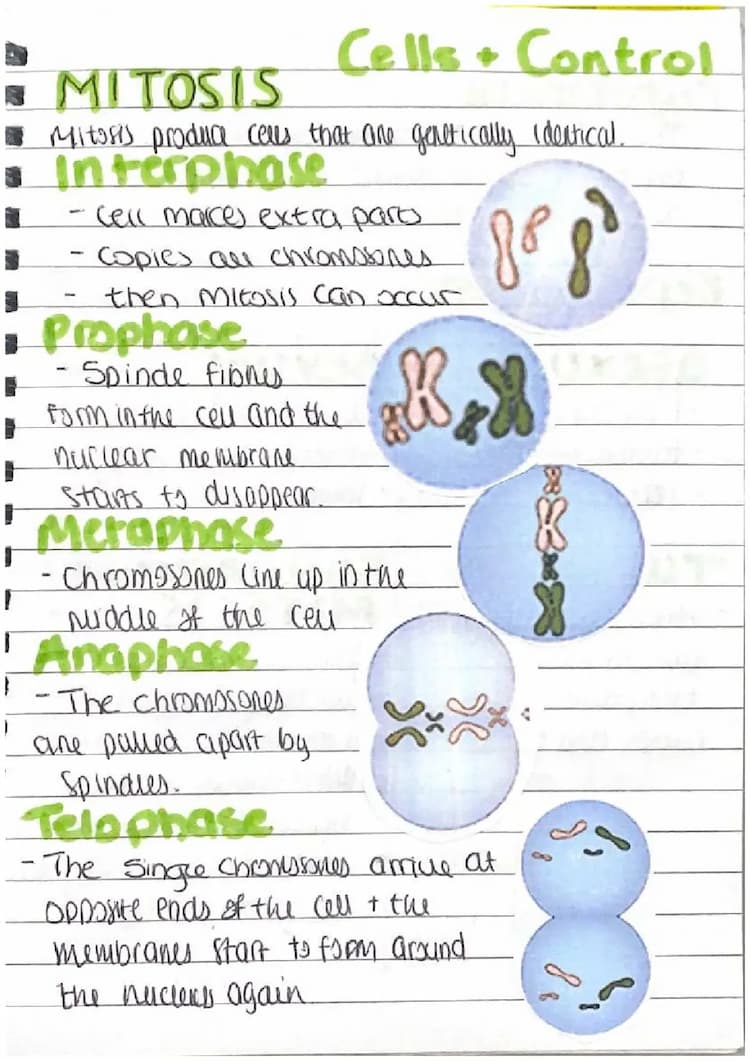 Cells + Control
MITOSIS
Mitosis produce cells that are genetically identical.
Interphase
- Cell makes extra parts
- Copies all chromosones
- then mitosis can occur
Prophase
- Spinde fibres
form in the cell and the
nuclear membrane
starts to disappear.
Metaphase
- Chromosones line up in the
middle of the cell
Anaphase
- The chromosones
are pulled apart by
spindles.
Telophase
- The single chromosones arrive at
opposite ends of the cell + the
membranes start to form around
the nucleus again